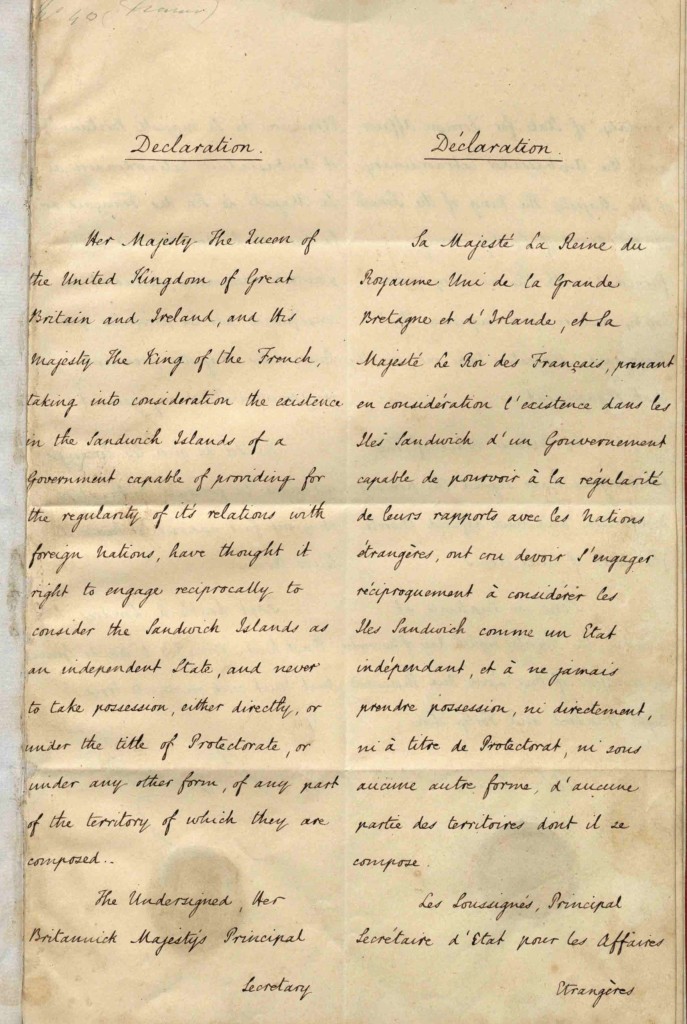 40 (
Declaration.
Her Majesty The Queen of
the United Kingdom of Great
Britain and Ireland, and His
Majesty The King of the French,
taking into consideration the existence
in the Sandwich Islands of a
Government capable of providing for
the regularity of it's relations with
foreign Nations, have thought it
right to engage reciprocally to
consider the Sandwich Islands as
an independent State, and never
to take possession, either directly, or
under the title of Protectorate, or
under any other form, of any part
of the territory of which they are
composed..
The Undersigned, Her
Britannick Majesty's Principal
Secretary
Déclaration.
Sa Majesté La Reine du
Royaume Uni de la Grande
Bretagne et d'Irlande, et Sa
Majesté Le Roi des Français, prenant
en considération l'existence dans les
Iles Sandwich d'un Gouvernement
capable de pourvoir à la régularité
de leurs rapports avec les Nations
étrangères, ont cru devoir s'engager
réciproquement à considérer les
Iles Sandwich comme un Etat
indépendant, et à ne jamais
prendre possession, ni directement,
ni à titre de Protectorat, ni sous
aucune autre forme, d'aucune
partie des territoires dont il se
compose.
Les Soussignés, Principal
Secrétaire d'Etat pour les Affaires
Etrangères